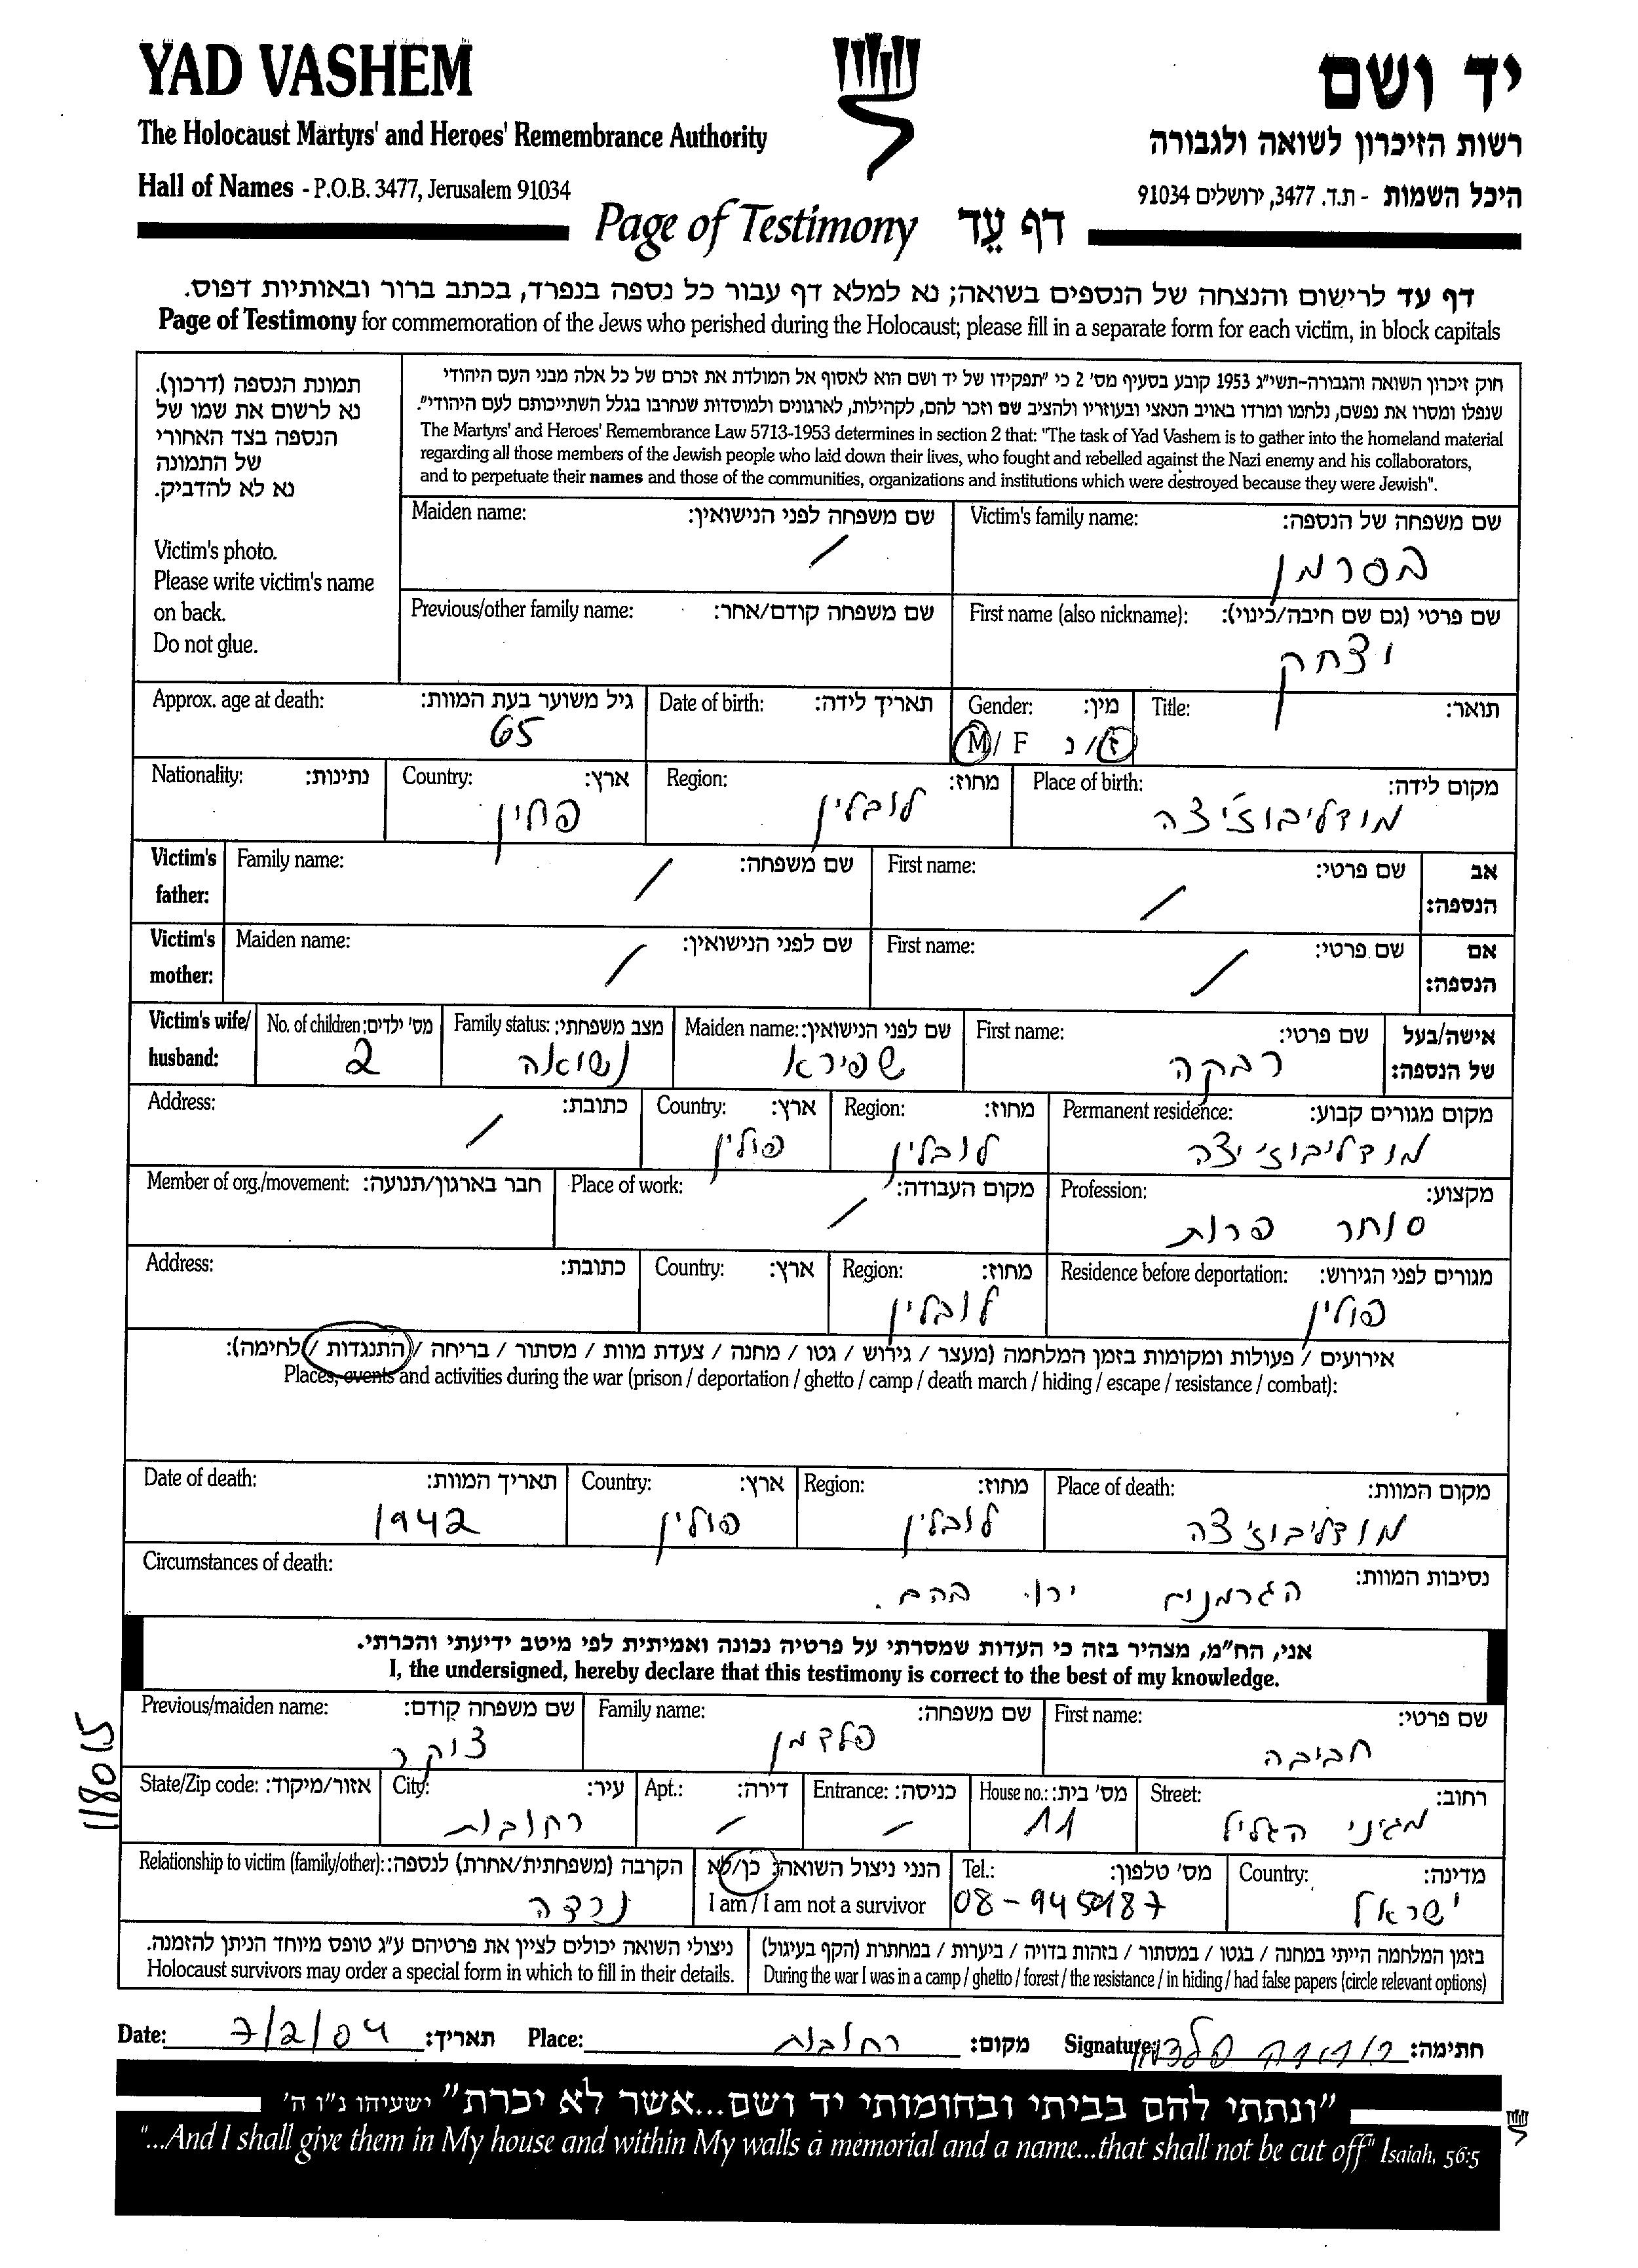 YAD VASHEM
יד ושם
The Holocaust Martyrs' and Heroes' Remembrance Authority
רשות הזיכרון לשואה ולגבורה
Hall of Names - P.O.B. 3477, Jerusalem 91034
היכל השמות - ת.ד. 3477, ירושלים 91034
Page of Testimony דף עֵד
דף עד לרישום והנצחה של הנספים בשואה; נא למלא דף עבור כל נספה בנפרד, בכתב ברור ובאותיות דפוס.
Page of Testimony for commemoration of the Jews who perished during the Holocaust; please fill in a separate form for each victim, in block capitals
תמונת הנספה (דרכון).
נא לרשום את שמו של
הנספה בצד האחורי
של התמונה
נא לא להדביק.
Victim's photo.
Please write victim's name
on back.
Do not glue.
חוק זיכרון השואה והגבורה-תשי"ג 1953 קובע בסעיף מס' 2 כי "תפקידו של יד ושם הוא לאסוף אל המולדת את זכרם של כל אלה מבני העם היהודי
שנפלו ומסרו את נפשם, נלחמו ומרדו באויב הנאצי ובעוזריו ולהציב שם וזכר להם, לקהילות, לארגונים ולמוסדות שנחרבו בגלל השתייכותם לעם היהודי".
The Martyrs' and Heroes' Remembrance Law 5713-1953 determines in section 2 that: "The task of Yad Vashem is to gather into the homeland material
regarding all those members of the Jewish people who laid down their lives, who fought and rebelled against the Nazi enemy and his collaborators,
and to perpetuate their names and those of the communities, organizations and institutions which were destroyed because they were Jewish".
Victim's family name: שם משפחה של הנספה:
בסרמן
Maiden name: שם משפחה לפני הנישואין:
/
First name (also nickname): שם פרטי (גם שם חיבה/כינוי):
יצחק
Previous/other family name: שם משפחה קודם/אחר:
Title: תואר:
Gender: מין:
M / F ז / נ
Date of birth: תאריך לידה:
Approx. age at death: גיל משוער בעת המוות:
65
Place of birth: מקום לידה:
מודליבוז'יצה
Region: מחוז:
לובלין
Country: ארץ:
פולין
Nationality: נתינות:
Victim's father: אב הנספה:
First name: שם פרטי:
/
Family name: שם משפחה:
/
Victim's mother: אם הנספה:
First name: שם פרטי:
/
Maiden name: שם לפני הנישואין:
/
Victim's wife/ husband: אישה/בעל של הנספה:
First name: שם פרטי:
רבקה
Maiden name: שם לפני הנישואין:
שפירא
Family status: מצב משפחתי:
נשואה
No. of children: מס' ילדים:
2
Permanent residence: מקום מגורים קבוע:
מודליבוז'יצה
Region: מחוז:
לובלין
Country: ארץ:
פולין
Address: כתובת:
/
Profession: מקצוע:
סוחר פרות
Place of work: מקום העבודה:
/
Member of org./movement: חבר בארגון/תנועה:
Residence before deportation: מגורים לפני הגירוש:
פולין
Region: מחוז:
לובלין
Country: ארץ:
Address: כתובת:
אירועים / פעולות ומקומות בזמן המלחמה (מעצר / גירוש / גטו / מחנה / צעדת מוות / מסתור / בריחה / התנגדות / לחימה):
Places, events and activities during the war (prison / deportation / ghetto / camp / death march / hiding / escape / resistance / combat):
Place of death: מקום המוות:
מודליבוז'יצה
Region: מחוז:
לובלין
Country: ארץ:
פולין
Date of death: תאריך המוות:
1942
Circumstances of death: נסיבות המוות:
הגרמנים ירו בהם.
אני, הח"מ, מצהיר בזה כי העדות שמסרתי על פרטיה נכונה ואמיתית לפי מיטב ידיעתי והכרתי.
I, the undersigned, hereby declare that this testimony is correct to the best of my knowledge.
First name: שם פרטי:
חביבה
Family name: שם משפחה:
פלדמן
Previous/maiden name: שם משפחה קודם:
צוקר
118015
Street: רחוב:
מגיני הגליל
House no.: מס' בית:
11
Entrance: כניסה:
/
Apt.: דירה:
/
City: עיר:
רחובות
State/Zip code: אזור/מיקוד:
Country: מדינה:
ישראל
Tel.: מס' טלפון:
הנני ניצול השואה: כן/לא
I am / I am not a survivor
Relationship to victim (family/other): הקרבה (משפחתית/אחרת) לנספה:
נכדה
בזמן המלחמה הייתי במחנה / בגטו / במסתור / בזהות בדויה / ביערות / במחתרת (הקף בעיגול)
During the war I was in a camp / ghetto / forest / the resistance / in hiding / had false papers (circle relevant options)
ניצולי השואה יכולים לציין את פרטיהם ע"ג טופס מיוחד הניתן להזמנה.
Holocaust survivors may order a special form in which to fill in their details.
Date: 7/2/04 תאריך: Place: רחובות מקום: Signature: חביבה פלדמן חתימה:
"ונתתי להם בביתי ובחומותי יד ושם...אשר לא יכרת" ישעיהו נ"ו ה'
"...And I shall give them in My house and within My walls a memorial and a name...that shall not be cut off" Isaiah, 56:5